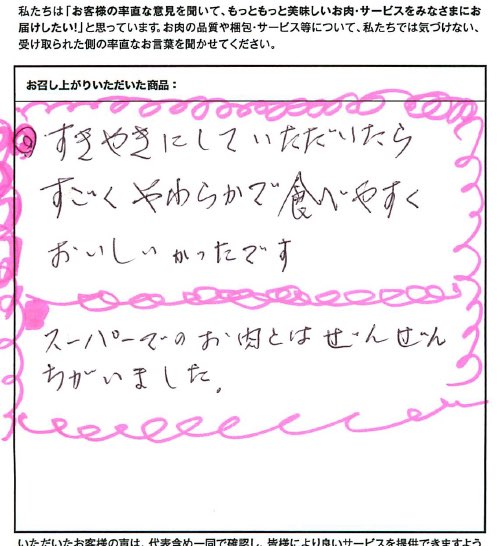 私たちは「お客様の率直な意見を聞いて、もっともっと美味しいお肉・サービスをみなさまにお
届けしたい!」と思っています。お肉の品質や梱包・サービス等について、私たちでは気づけない、
受け取られた側の率直なお言葉を聞かせてください。
お召し上がりいただいた商品：
すきやきにしていただいたら
すごくやわらかで食べやすく
おいしいかったです
スーパーでのお肉とはぜんぜん
ちがいました。
いただいたお客様の声は、代表含め一同で確認し、皆様により良いサービスを提供できますよう